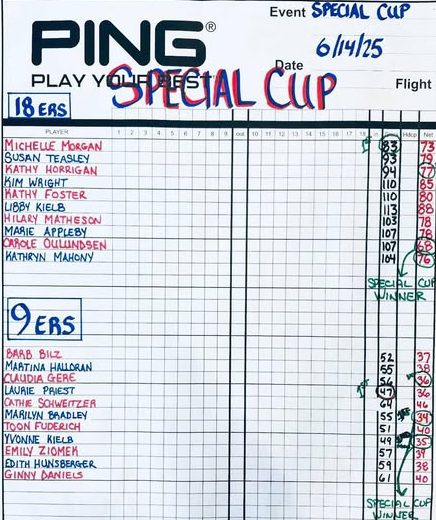 Event SPECIAL CUP
PING®
Date 6/14/25
PLAY YOUR BEST
SPECIAL CUP
Flight
18ERS
PLAYER 1 2 3 4 5 6 7 8 9 out 10 11 12 13 14 15 16 17 18 in Hdcp Net
MICHELLE MORGAN 1st 83 73
SUSAN TEASLEY 93 79
KATHY HORRIGAN 94 77
KIM WRIGHT 110 85
KATHY FOSTER 110 80
LIBBY KIELB 113 88
HILARY MATHESON 103 78
MARIE APPLEBY 107 78
CAROLE OULUNDSEN 107 68
KATHRYN MAHONY 104 76
SPECIAL CUP
WINNER
9ERS
BARB BILZ 52 37
MARTINA HALLORAN 55 38
CLAUDIA GERE 56 36
LAURIE PRIEST 1st 47 36
CATHIE SCHWEITZER 64 46
MARILYN BRADLEY 55 34
TOON FUDERICH 51 40
YVONNE KIELB 49 35
EMILY ZIOMEK 57 39
EDITH HUNSBERGER 59 38
GINNY DANIELS 61 40
SPECIAL CUP
WINNER